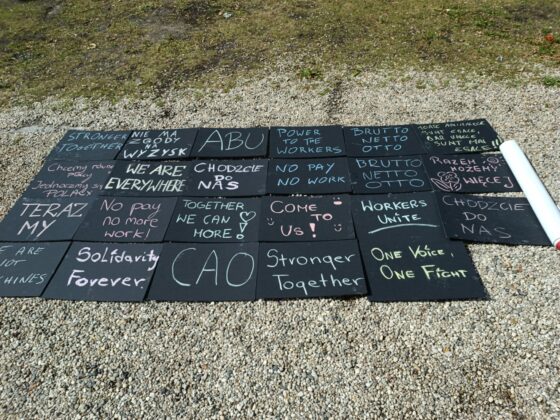 STRONGER
TOGETHER
NIE MA
ZGODY
NA
WYZYSK
ABU
POWER
TO THE
WORKERS
BRUTTO
NETTO
OTTO
SUNT
SUNT MAI
Chcemy
Jednoczmy się
POLACY
WE ARE
EVERYWHERE
CHODZCIE
DO
NAS
NO PAY
NO WORK
BRUTTO
NETTO
OTTO
RAZEM
MOŻEMY
WIĘCEJ
TERAZ
MY
No pay
no more
work!
TOGETHER
WE CAN DO
MORE!
COME
TO
US!
WORKERS
UNITE
CHODZCIE
DO
NAS
ARE
NOT
Solidarity
Forever
CAO
Stronger
Together
ONE VOICE,
ONE FIGHT